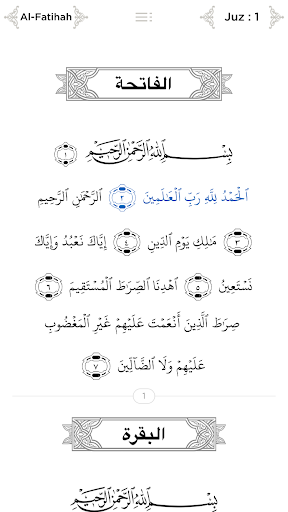 Al-Fatihah Juz : 1
الفاتحة
بِسْمِ ٱللَّهِ ٱلرَّحْمَٰنِ ٱلرَّحِيمِ ١
ٱلْحَمْدُ لِلَّهِ رَبِّ ٱلْعَٰلَمِينَ ٢ ٱلرَّحْمَٰنِ ٱلرَّحِيمِ
٣ مَٰلِكِ يَوْمِ ٱلدِّينِ ٤ إِيَّاكَ نَعْبُدُ وَإِيَّاكَ
نَسْتَعِينُ ٥ ٱهْدِنَا ٱلصِّرَٰطَ ٱلْمُسْتَقِيمَ ٦
صِرَٰطَ ٱلَّذِينَ أَنْعَمْتَ عَلَيْهِمْ غَيْرِ ٱلْمَغْضُوبِ
عَلَيْهِمْ وَلَا ٱلضَّآلِّينَ ٧
1
البقرة
بِسْمِ ٱللَّهِ ٱلرَّحْمَٰنِ ٱلرَّحِيمِ